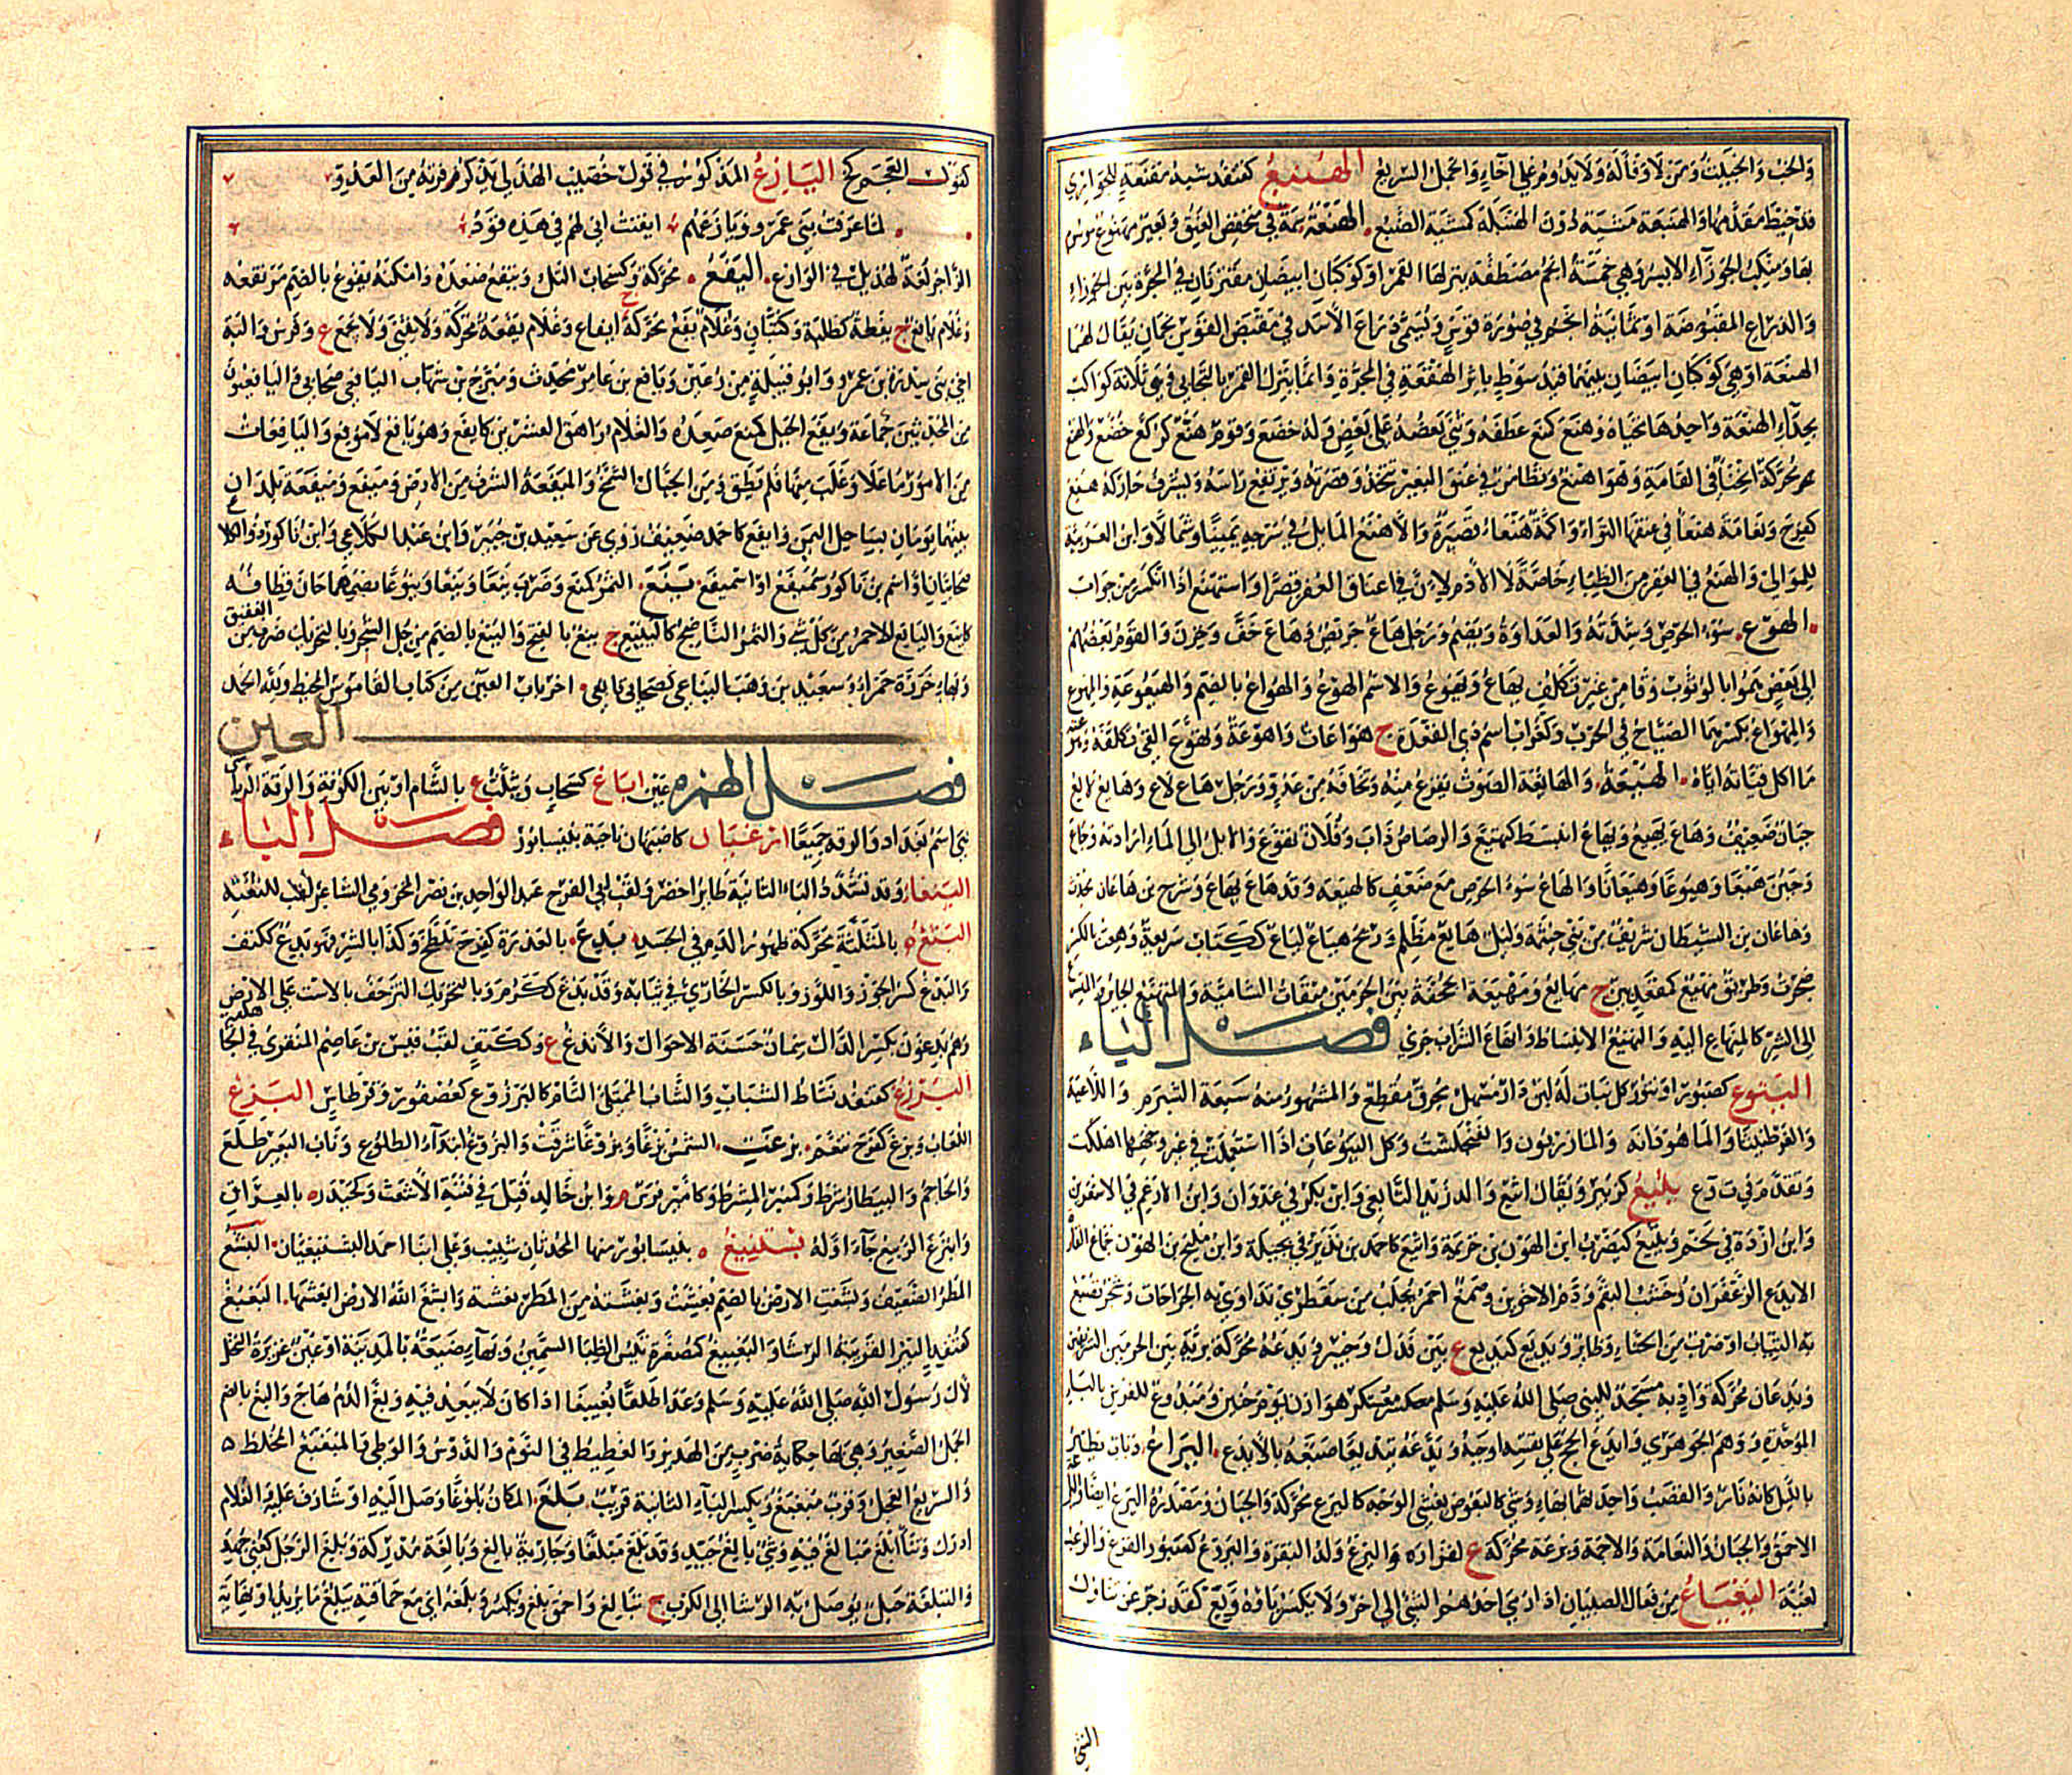 والخب والخبيث ومن لا وفاء له ولا يدوم على اخاء والحمل السريع الهنبع كقنفذ شبه مقنعة للجواري
قد خيط مقدمها والهنبعة مشية دون الهنبلة كمشية الضبع الهنعة سمة في منخفض العنق وبعير مهنوع موسوم
بها ومنكب الجوزاء الايسر وهي خمسة انجم مصطفة ينزلها القمر او كوكبان ابيضان مقترنان في المجرة بين الجوزاء
والذراع المقبوضة او ثمانية انجم في صورة قوس وتسمى ذراع الاسد في مقبض القوس نجمان يقال لهما
الهنعة او هي كوكبان ابيضان بينهما قيد سوط باثر الهقعة في المجرة وانما ينزل القمر بالتحايي وهي ثلاثة كواكب
بحذاء الهنعة واحدها تحياة وهنع كمنع عطفه وثنى بعضه على بعض وله خضع وقوم هنع كركع خضع والهنع
محركة انحناء في القامة وهو اهنع وتطامن في عنق البعير
كفرح ونعامة هنعاء في عنقها التواء واكمة هنعاء قصيرة والاهنع المايل في سرجه يمينا وشمالا وابن العربية
للموالي والهنع في العفر من الظباء خاصة لا الادم لان في اعناق العفر قصرا واستهنع اذا انكسر من جواب
الهوع سوء الحرص وشدته والعداوة ويضم ورجل هاع حريص وهاع خف وحزن والقوم بعضهم
الى بعض هموا بالوثوب وقاء من غير تكلف يهاع ويهوع والاسم الهوع والهواع بالضم والهيعوعة والمهوع
والمهواع بكسرهما الصياح في الحرب وكغراب اسم ذي القعدة ج هواعات واهوعة وتهوع القيء تكلفه
ما اكل قياته اياه الهيعة والهائعة الصوت تفزع منه وتخافه من عدو ورجل هاع لاع وهايع لايع
جبان ضعيف وهاع يهيع ويهاع انبسط كتهيع والرصاص ذاب وفلان تفزع والابل الى الماء ارادته وجاع
وجبن هيعا وهيوعا وهيعانا والهاع سوء الحرص مع ضعف كالهيعة وقد هاع يهاع وشرح بن هاعان محدث
وهاعان بن الشيطان شريف من بني خيثمة وليل هايع مظلم وريح هياع لياع ككتاب سريعة وهعت بالكسر
ضجرت وطريق مهيع كمقعد بين ج مهايع ومهيعة الجحفة بين الحرمين ميقات الشاميين والمتهيع الحاير
الى الشر كالمنهاع اليه والتهيع الانبساط وانهاع السراب جرى فصل الياء
اليتوع كصبور او تنور كل نبات له لبن دار مسهل محرق مقطع والمشهور منه سبعة الشبرم واللاعية
والعرطنيثا والماهودانة والمازريون والفنجلشت وكل اليتوعات اذا استعملت في غير وجهها اهلكت
وتقدم في ت وع يثيع كزبير ويقال اثيع والد زيد التابعي وابن بكر في عدوان وابن الارغم في الاشعرين
وابن اردة في لخم ويثيع كيضرب ابن الهون بن خزيمة واثيع كاحمد بن نذير في بجيلة وابن مليح بن الهون جماع القارة
الايدع الزعفران وخشب البقم ودم الاخوين وصمغ احمر يجلب من سقطرى تداوى به الجراحات وشجر تصبغ
به الثياب او ضرب من الحناء وطائر ويديع كبديع ع بين فدك وخيبر ويدعة محركة برية بين الحرمين الشريفين
ويدعان محركة واد به مسجد للنبي صلى الله عليه وسلم معسكر هوازن يوم حنين وميدوع للفرس بالباء
الموحدة ووهم الجوهري وايدع الحج على نفسه اوجبه ويدعه تيديعا صبغه بالايدع اليراع ذباب يطير
بالليل كانه نار والقصب واحدتهما بهاء وشي كالبعوض يغشى الوجه كاليرع محركة والجبان ومصدره اليرع ايضا
الاحمق والجبان والنعامة والاجمة ويرعة محركة ع لفزارة واليرع ولد البقرة واليروع كصبور الفزع والرعب
لعبة اليعياع من فعال الصبيان اذا رمى احدهم الشئ الى اخر ولا يكسر ياؤه ويع كقد زجر عن تناول
الشئ
كقول العجم كخ اليازع المذكور في قول خصيب الهذلي يذكر فرته من العدو
لما عرفت بني عمرو ويازعهم ايقنت اني لهم في هذه قود
الزاجر لغة لهذيل في الوازع اليفع محركة وكسحاب التل ويفع صعده وامكنة يفوع بالضم مرتفعة
وغلام يافع ج يفعة كطلبة وكثبان وغلام يفع محركة ج ايفاع وغلام يفعة محركة ولا يثنى ولا يجمع ع وفرس والبة
اخي بني سدرة بن عمرو وابو قبيلة من رعين ويافع بن عامر محدث ومبرح بن شهاب اليافعي صحابي واليافعيون
من المحدثين جماعة ويفع الجبل كمنع صعده والغلام راهق العشرين كايفع وهو يافع لا موفع واليافعات
من الامور ما علا وغلب منها فلم يطق ومن الجبال الشمخ والميفعة الشرف من الارض وميفع وميفعة بلدان
بينهما يومان بساحل اليمن وايفع كاحمد ضعيف روى عن سعيد بن جبير وابن عبد الكلاعي وابن ناكور ذو الكلاع
صحابيان او اسم بن ناكور سميفع او اسميفع ينع الثمر كمنع وضرب ينعا وينعا وينوعا بضمهما حان قطافه
كاينع واليانع الاحمر من كل شئ والثمر الناضج كالينيع ج ينع بالفتح والينع بالضم من جل الشجر وبالتحريك ضرب من العقيق
وبهاء خرزة حمراء وسعيد بن وهب اليناعي كصحابي تابعي اخر باب العين من كتاب القاموس المحيط ولله الحمد
العين
فصل الهمزه عين اباغ كسحاب ويثلث ع بالشام او بين الكوفة والرقة
اسم بغداد والرقه جميعا ارغيان كاصبهان ناحية بنيسابور فصل الباء
الببغاء وقد تشدد الباء الثانية طاير اخضر ولقب ابي الفرج عبد الواحد بن نصر المخزومي الشاعر لقب للثغته
البثغ بالمثلثة محركة ظهور الدم في الجسد بدغ بالعذرة كفرح تلطخ وكذا بالشر فهو بدغ ككتف
والبدغ كسر الجوز واللوز وبالكسر الخاري في ثيابه وقد بدغ ككرم وبالتحريك التزحف بالاست على الارض
وهم بدغون بكسر الدال سمان حسنة الاحوال والابدغ ع وككتف لقب قيس بن عاصم المنقري في الجاهلية
البرزغ كقنفذ نشاط الشباب والشاب الممتلئ التام كالبرزوغ كعصفور وقرطاس البرغ
اللعاب وبرغ كفرح تنعم بزغت الشمس بزغا وبزوغا شرقت والبزوغ ابتداء الطلوع وناب البعير طلع
والحاجم والبيطار شرط وكمنبر المشرط وكامير فرس وابن خالد قتل في فتنة الاشعث وكحيدر ه بالعراق
وابتزغ الربيع جاء اوله بشتنيغ ه بنيسابور منها المحدثان شبيب وعلي ابنا احمد البشتنيغيان البشغ
المطر الضعيف وبشغت الارض بالضم بغشت وبغشة من المطر بغشة وابشغ الله الارض ابغشها البغبغ
كقنفذ البئر القريبة الرشا والبغيبغ كمصغره تيس الظبا السمين وبهاء ضيعة بالمدينة او عين غزيرة النخل
لال رسول الله صلى الله عليه وسلم وعدا طلقا بغيبغا اذا كان لا يبعد فيه وبغ الدم هاج والبغ بالضم
الجمل الصغير وهي بهاء والبغبغة حكاية ضرب من الهدير والغطيط في النوم والدوس والوطي والمبغبغ المخلط
والسريع العجل وقرب مبغبغ وبكسر الباء الثانية قريب بلغ المكان بلوغا وصل اليه او شارف عليه والغلام
ادرك وثناء ابلغ مبالغ فيه وشئ بالغ جيد وقد بلغ مبلغا وجارية بالغ وبالغة مدركة وبلغ الرجل كعني جهد
والتبلغة حبل يوصل به الرشا الى الكرب ج تبالغ واحمق بلغ ويكسر وبلغة اي مع حماقته يبلغ ما يريد او نهاية